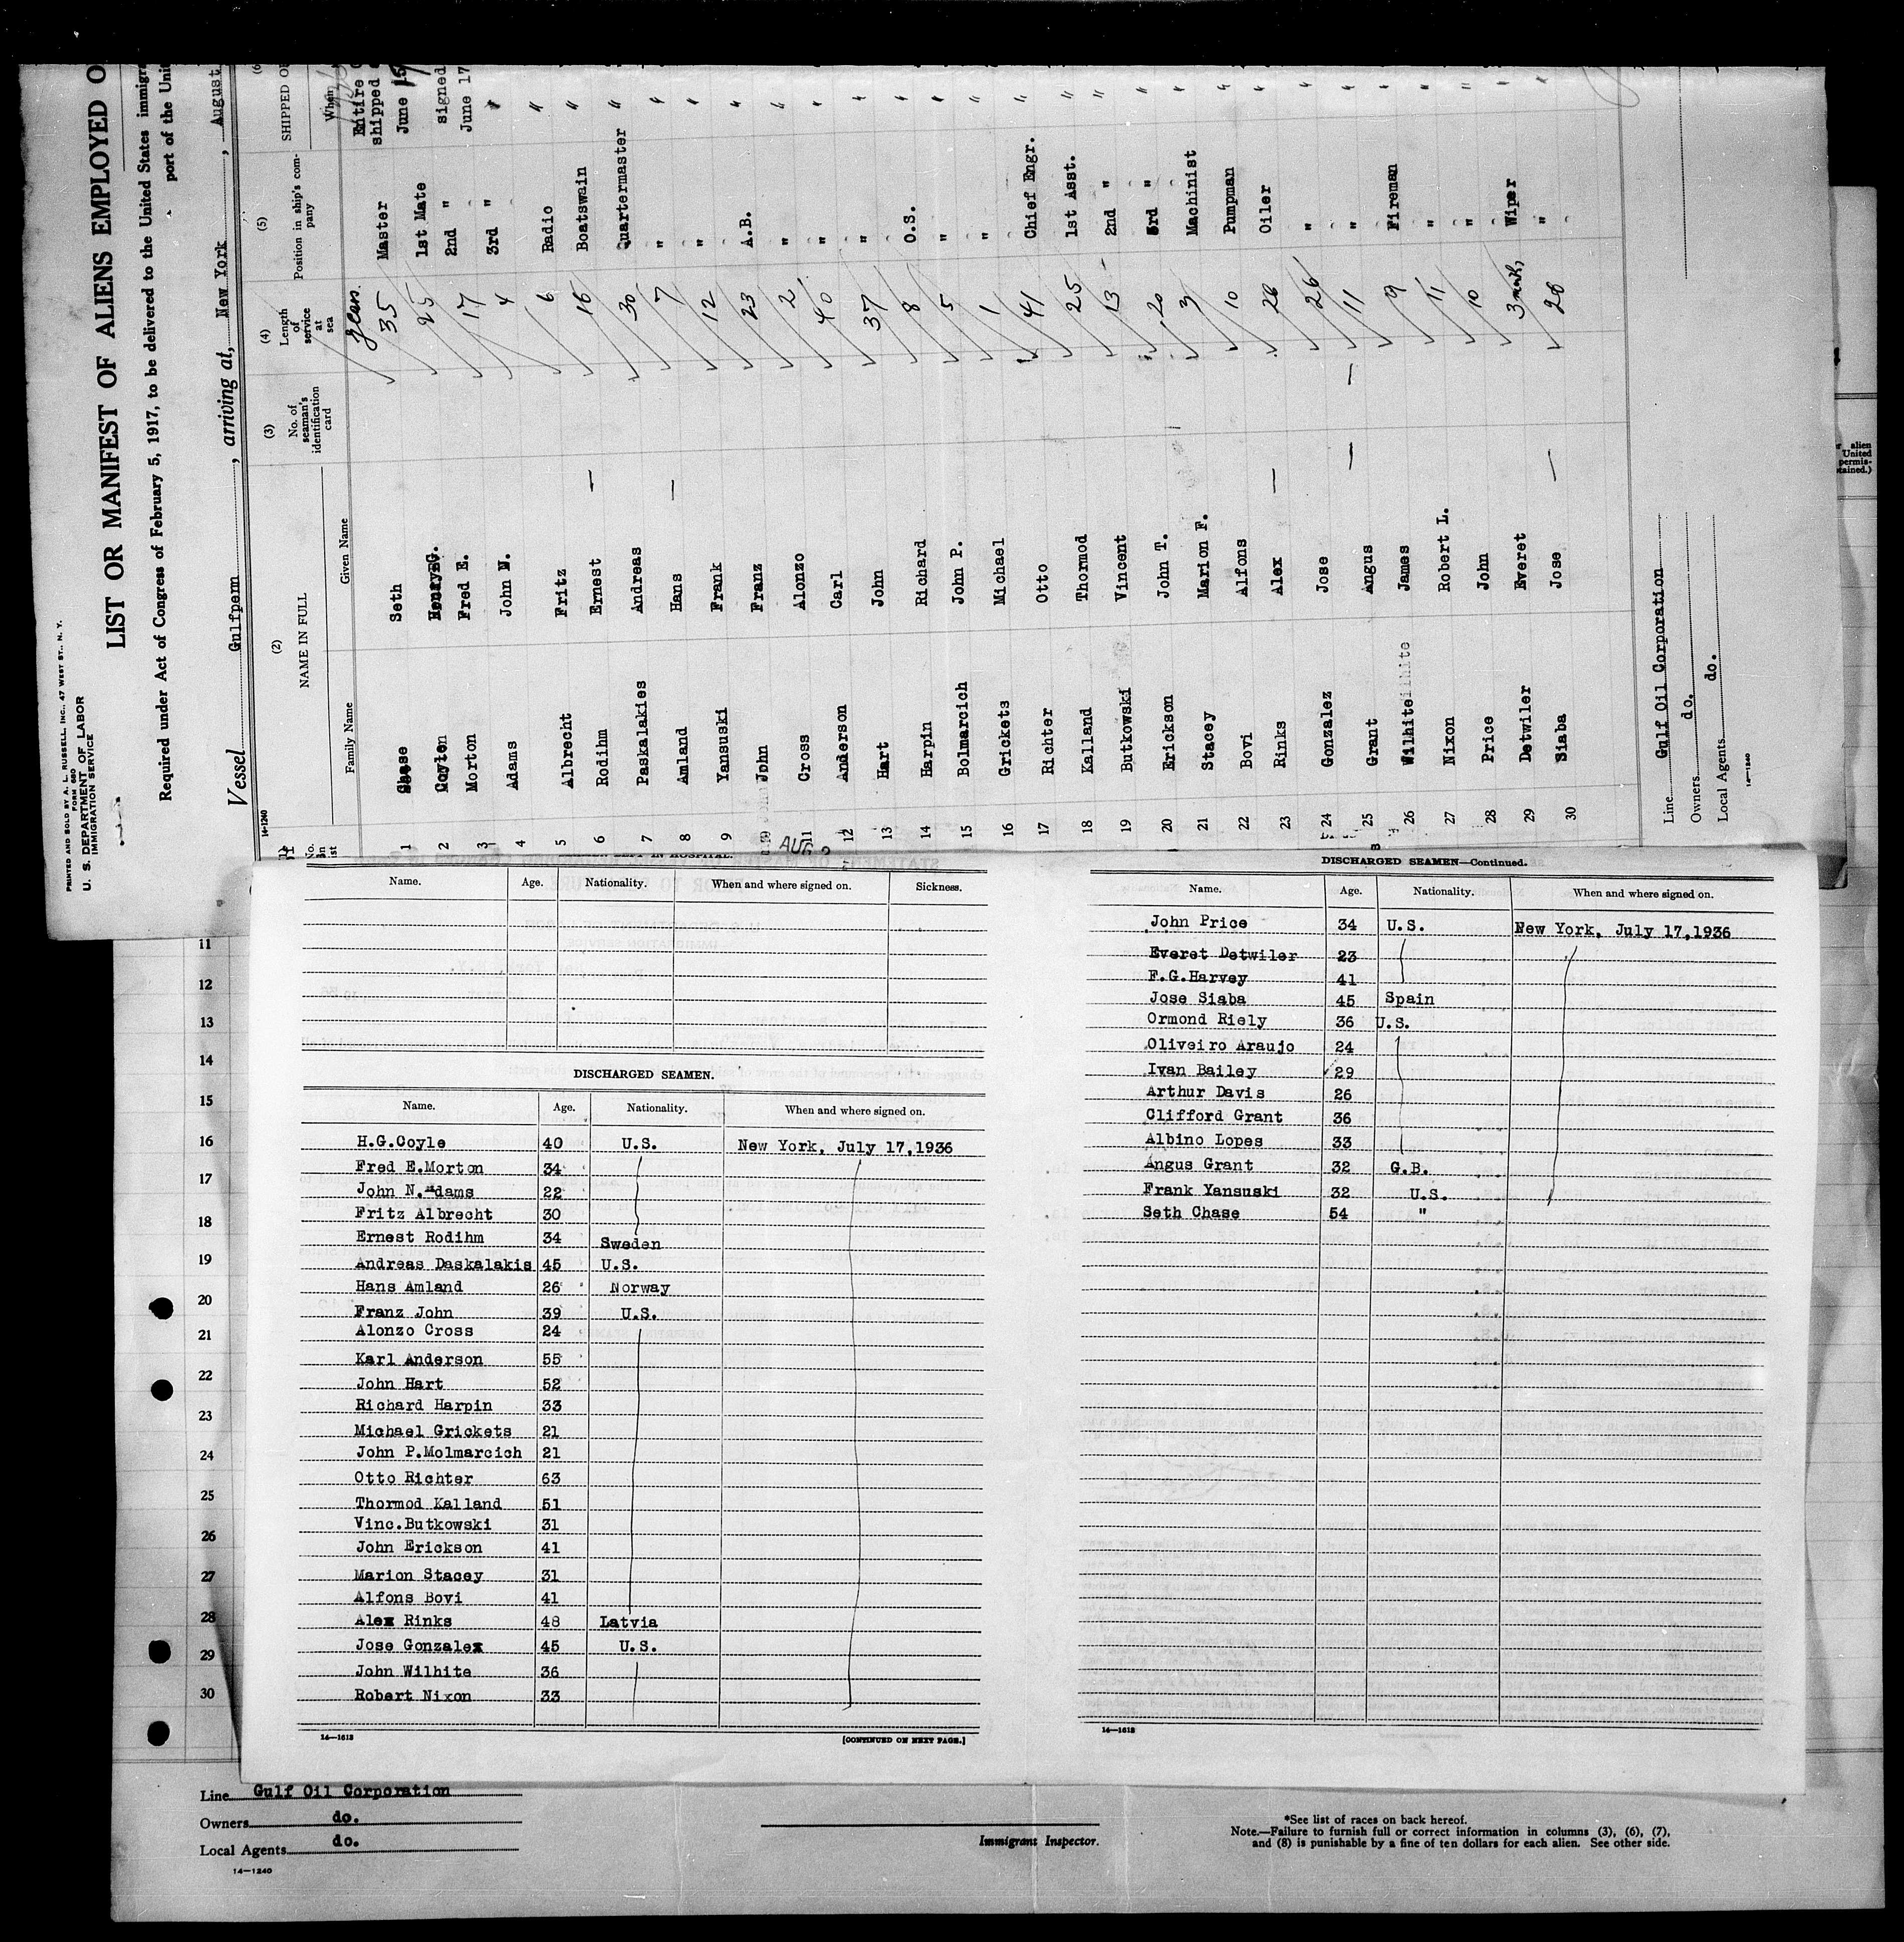 PRINTED AND SOLD BY A. L. RUSSELL, INC., 47 WEST ST., N. Y.
FORM 680
U. S. DEPARTMENT OF LABOR
IMMIGRATION SERVICE
LIST OR MANIFEST OF ALIENS EMPLOYED O
Required under Act of Congress of February 5, 1917, to be delivered to the United States immigra
port of the Unit
Vessel Gulfpenn, arriving at, New York, August
14-1240
(2) (3) (4) (5)
NAME IN FULL No. of seaman's identification card Length of service at sea Position in ship's company SHIPPED OR
Family Name Given Name When
years Entire
shipped
1 Chase Seth 35 Master June
2 Coyten G. 25 1st Mate signed
Morton Fred E. 17 2nd " June 17
3 Adams John N. 4 3rd "
5 Albrecht Fritz 6 Radio "
6 Rodihm Ernest — 16 Boatswain "
7 Paskalakies Andreas 30 Quartermaster "
8 Amland Hans — 7 " "
9 Yansuski Frank 12 " "
10 John Franz 23 A.B. "
11 Cross Alonzo 2 " "
12 Anderson Carl 40 " "
13 Hart John 37 " "
14 Harpin Richard 8 O.S. "
15 Bolmarcich John P. 5 " "
16 Grickets Michael 1 " "
17 Richter Otto 41 Chief Engr. "
18 Kalland Thormod 25 1st Asst. "
19 Butkowski Vincent 13 2nd " "
20 Erickson John T. 20 3rd " "
21 Stacey Marion F. 3 Machinist "
22 Bovi Alfons 10 Pumpman "
23 Rinks Alex — 28 Oiler "
24 Gonzalez Jose 26 " "
25 Grant Angus — — 11 " "
26 Wilhite James 9 Fireman "
27 Nixon Robert L. 11 " "
28 Price John 10 " "
29 Detwiler Everet 3 mth, Wiper "
30 Siaba Jose — 28 " "
Line Gulf Oil Corporation
Owners do.
Local Agents do.
14-1240
AUG
Name. Age. Nationality. When and where signed on. Sickness.
DISCHARGED SEAMEN.
Name. Age. Nationality. When and where signed on.
H.G.Coyle 40 U.S. New York, July 17,1936
Fred E.Morton 34
John N.Adams 22
Fritz Albrecht 30
Ernest Rodihm 34 Sweden
Andreas Daskalakis 45 U.S.
Hans Amland 26 Norway
Franz John 39 U.S.
Alonzo Cross 24
Karl Anderson 55
John Hart 52
Richard Harpin 33
Michael Grickets 21
John P.Molmarcich 21
Otto Richter 63
Thormod Kalland 51
Vinc.Butkowski 31
John Erickson 41
Marion Stacey 31
Alfons Bovi 41
Alex Rinks 48 Latvia
Jose Gonzalez 45 U.S.
John Wilhite 36
Robert Nixon 33
14-1613
[CONTINUED ON NEXT PAGE.]
DISCHARGED SEAMEN—Continued.
Name. Age. Nationality. When and where signed on.
John Price 34 U.S. New York, July 17,1936
Everet Detwiler 23
F.G.Harvey 41
Jose Siaba 45 Spain
Ormond Riely 36 U.S.
Oliveiro Araujo 24
Ivan Bailey 29
Arthur Davis 26
Clifford Grant 36
Albino Lopes 33
Angus Grant 32 G.B.
Frank Yansuski 32 U.S.
Seth Chase 54 "
14-1613
11
12
13
14
15
16
17
18
19
20
21
22
23
24
25
26
27
28
29
30
alien
United
permis-
tained.)
Line Gulf Oil Corporation
Owners do.
Local Agents do.
14-1240
Immigrant Inspector.
*See list of races on back hereof.
Note.—Failure to furnish full or correct information in columns (3), (6), (7),
and (8) is punishable by a fine of ten dollars for each alien. See other side.